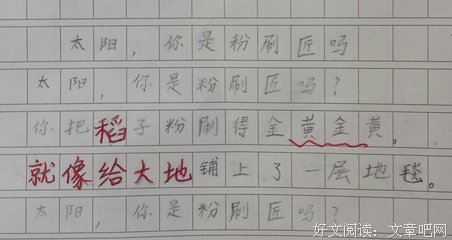 太阳，你是粉刷匠吗
太阳，你是粉刷匠吗？
你把稻子粉刷得金黄金黄。
就像给大地铺上了一层地毯。
太阳，你是粉刷匠吗？
好文阅读：文章吧网